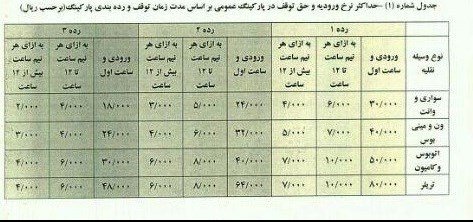 جدول شماره (۱) -حداکثر نرخ ورودیه و حق توقف در پارکینگ عمومی بر اساس مدت زمان توقف و رده بندی پارکینگ(برحسب ریال)
نوع وسیله نقلیه | رده ۱ | رده ۲ | رده ۳
ورودی و ساعت اول | به ازای هر نیم ساعت تا ۱۲ ساعت | به ازای هر نیم ساعت بیش از ۱۲ ساعت | ورودی و ساعت اول | به ازای هر نیم ساعت تا ۱۲ ساعت | به ازای هر نیم ساعت بیش از ۱۲ ساعت | ورودی و ساعت اول | به ازای هر نیم ساعت تا ۱۲ ساعت | به ازای هر نیم ساعت بیش از ۱۲ ساعت
سواری و وانت | ۳۰/۰۰۰ | ۶/۰۰۰ | ۴/۰۰۰ | ۲۴/۰۰۰ | ۵/۰۰۰ | ۳/۰۰۰ | ۱۸/۰۰۰ | ۴/۰۰۰ | ۲/۰۰۰
ون و مینی بوس | ۴۰/۰۰۰ | ۷/۰۰۰ | ۵/۰۰۰ | ۳۲/۰۰۰ | ۶/۰۰۰ | ۴/۰۰۰ | ۲۴/۰۰۰ | ۴/۰۰۰ | ۳/۰۰۰
اتوبوس و کامیون | ۵۰/۰۰۰ | ۱۰/۰۰۰ | ۷/۰۰۰ | ۴۰/۰۰۰ | ۸/۰۰۰ | ۶/۰۰۰ | ۳۰/۰۰۰ | ۶/۰۰۰ | ۴/۰۰۰
تریلر | ۸۰/۰۰۰ | ۱۰/۰۰۰ | ۷/۰۰۰ | ۶۴/۰۰۰ | ۸/۰۰۰ | ۶/۰۰۰ | ۴۸/۰۰۰ | ۶/۰۰۰ | ۴/۰۰۰